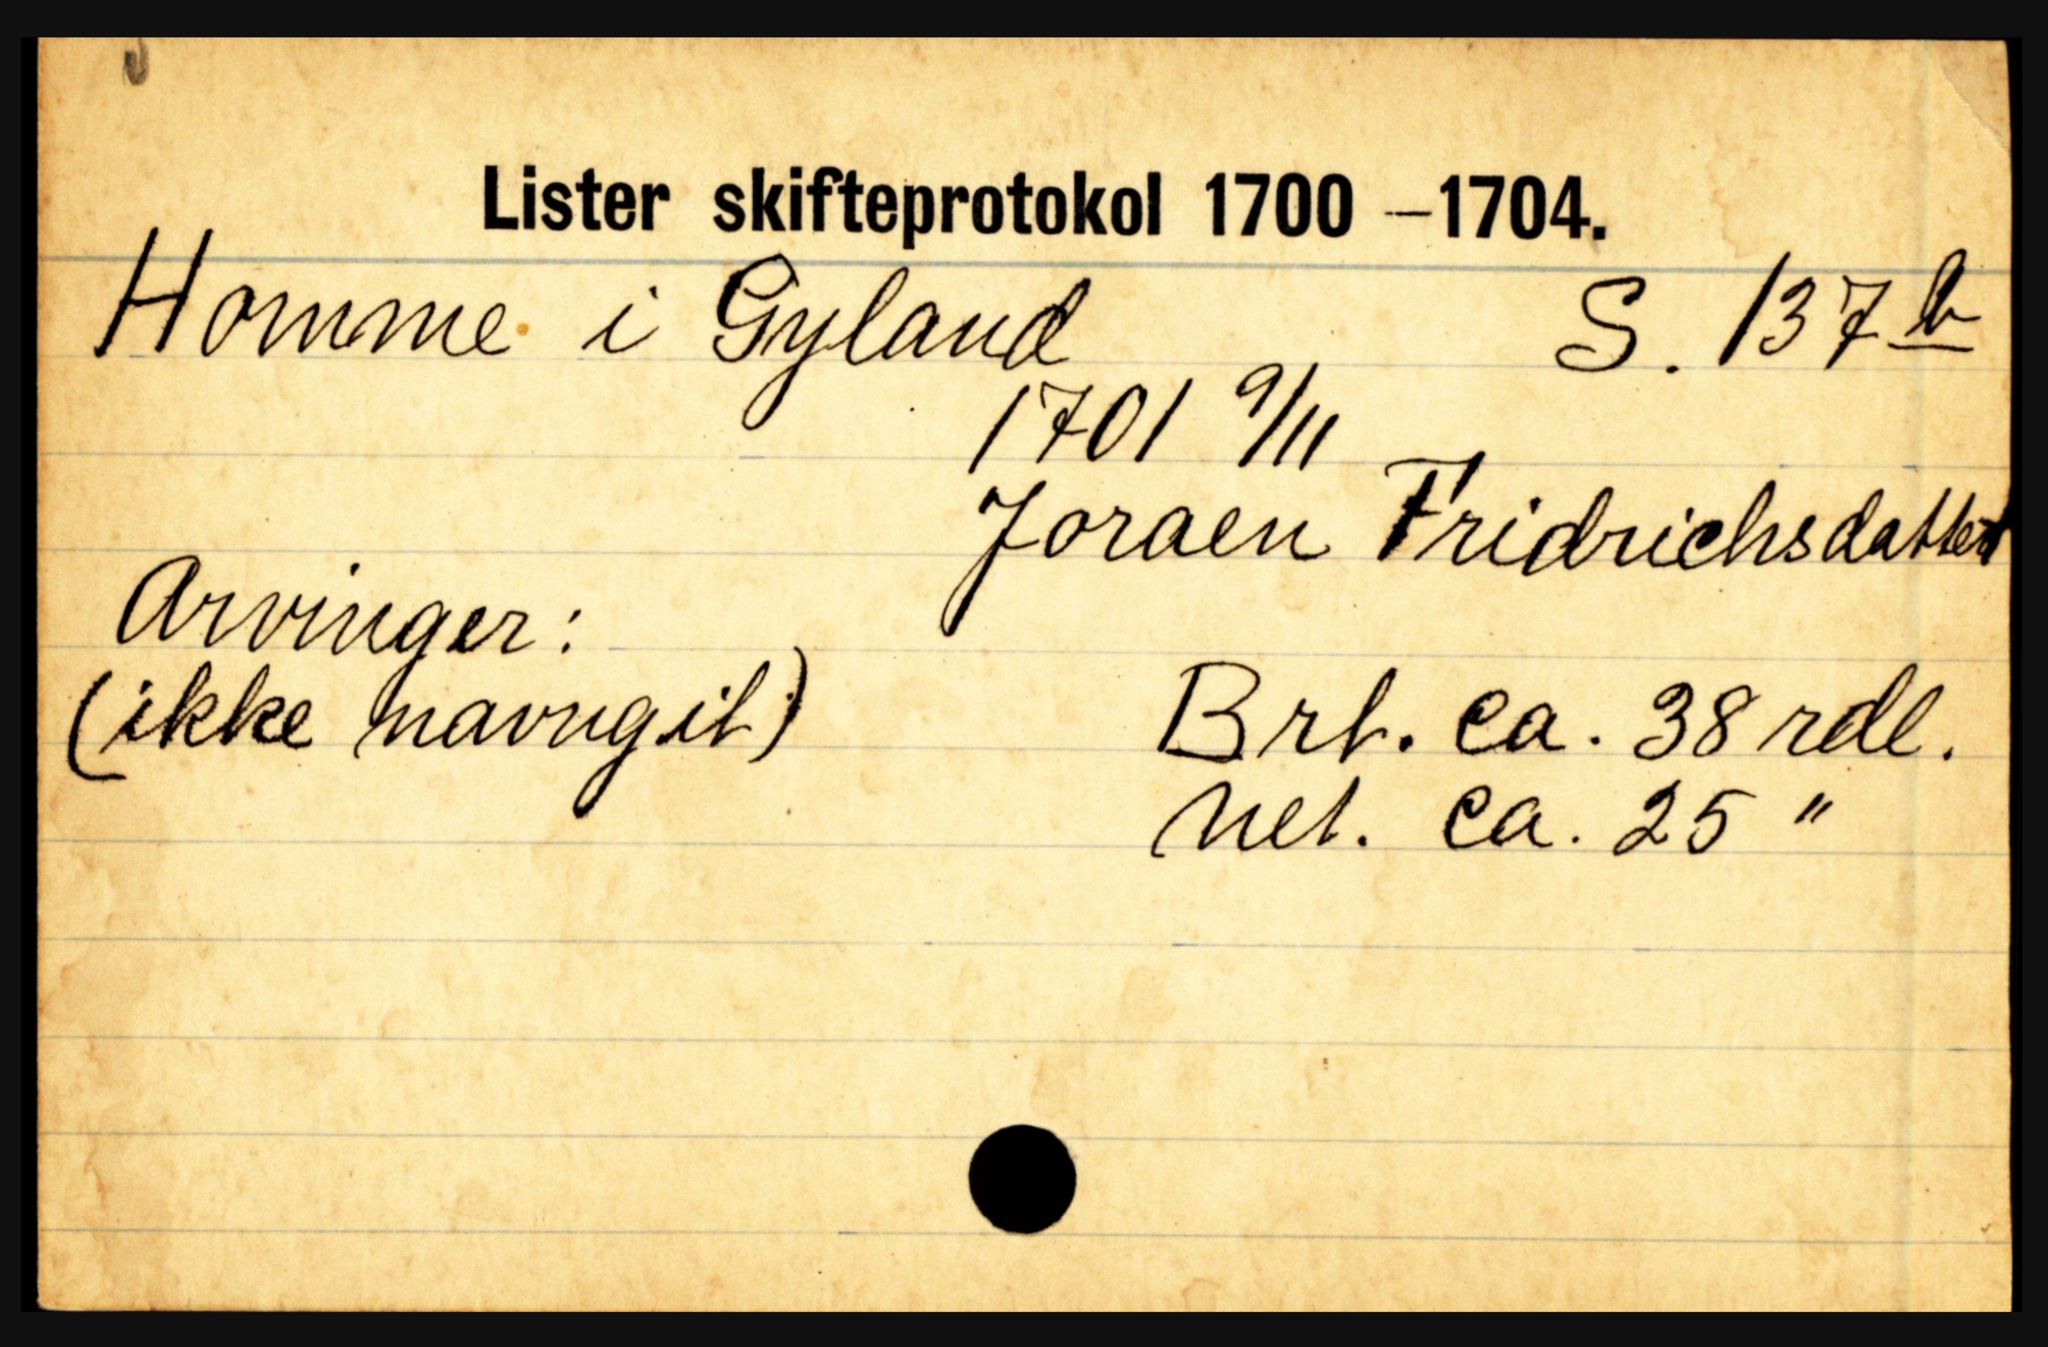 Lister skifteprotokol 1700 – 1704.
Homme i Gyland S. 137 b
1701 9/11
Joraen Fridrichsdatter
Arvinger:
(ikke navngit) Brt. ca. 38 rdl.
Net. ca. 25 "